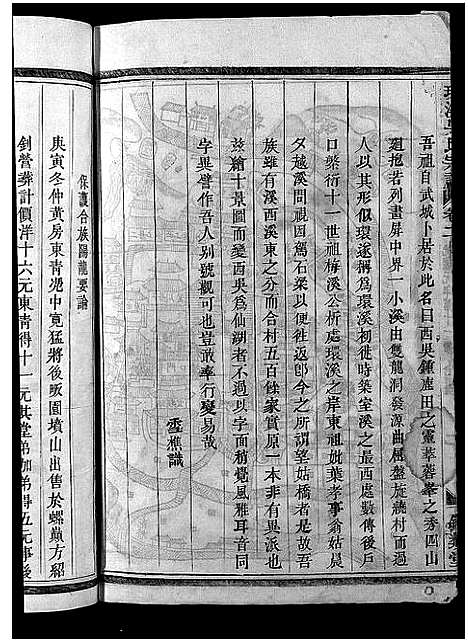 吾祖自武城卜居於此名曰西吳鍾鹿田之靈萃蓉峯之秀四山
迴抱若列畫屏中界一小溪由雙龍洞發源曲屈盤旋繞村而過
人以其形似環遂稱爲環溪初徙時築室溪之最西處數傳後戶
口欒衍十一世祖梅溪公析處環溪之岸東祖妣葉孝事翁姑晨
夕越溪問視因駕石梁以便往返卽今之所謂望姑橋者是故吾
族雖有溪西溪東之分而合村五百餘家實原一本非有異派也
茲繪十景圖而變西吳爲仙湖者不過以字面稍覺風雅耳音同
字異譬作吾人別號觀可也豈敢率行變易哉
香樵識
保護合族陽龍要論
庚寅冬仲黃房東青慿中寛猛將後畈園墳山出售於螺巔方紹
釗營葬計價洋十六元東青得十一元其堂弟加弟得五元事後